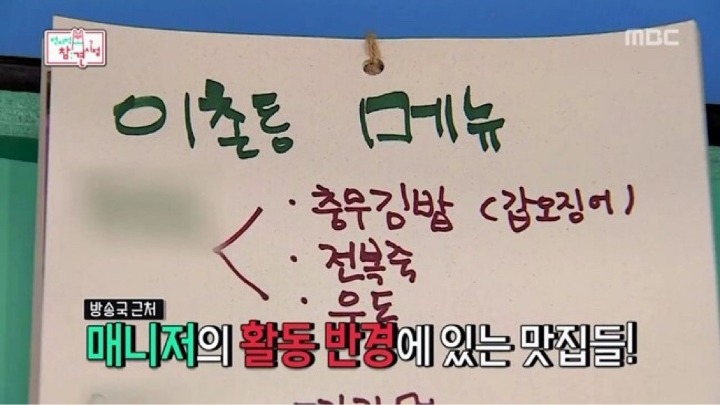 전지적 참견 시점
MBC
이촌동 메뉴
· 충무김밥 (갑오징어)
· 전복죽
· 우동
방송국 근처
매니저의 활동 반경에 있는 맛집들!